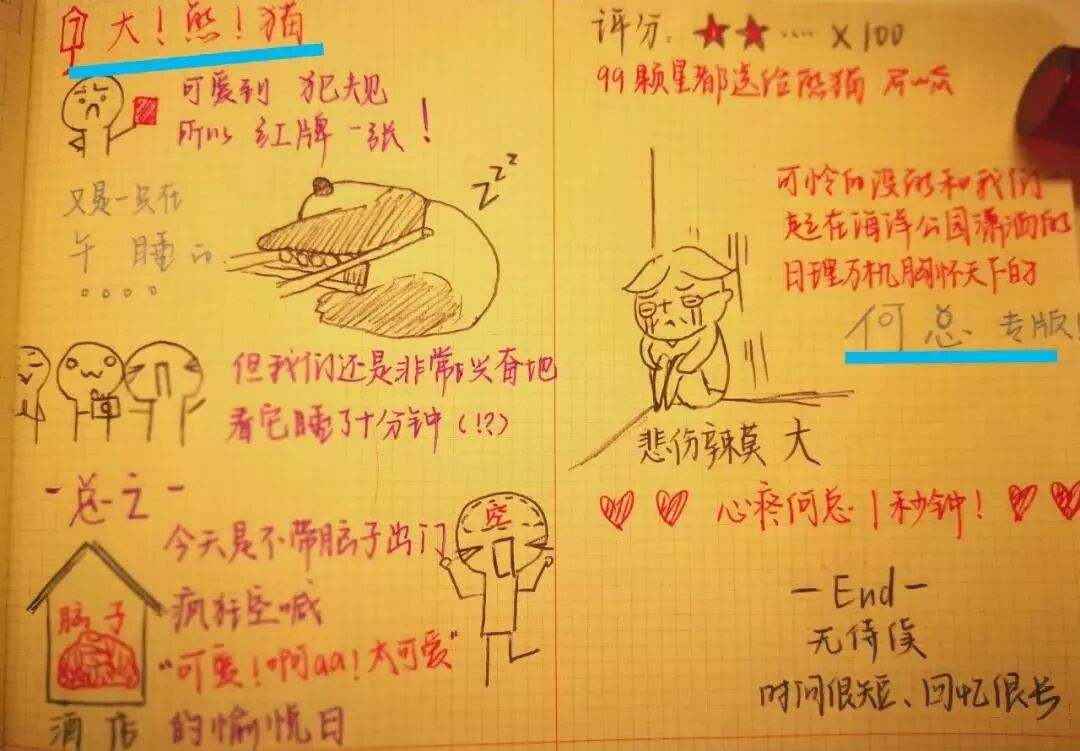 大！熊！猫
可爱到 犯规
所以 红牌一张！
又是一只在
午睡的
。。。。
但我们还是非常兴奋地
看它睡了十分钟（！？）
－总之－
今天是不带脑子出门
疯狂空喊
“可爱！啊aa！太可爱”
的愉悦日
空
脑子
酒店
评分：★★……×100
99颗星都送给熊猫
可怜的没能和我们
一起在海洋公园潇洒的
日理万机胸怀天下的
何总 专版！
悲伤辣莫 大
心疼何总1秒钟！
－End－
无侍侯
时间很短、回忆很长